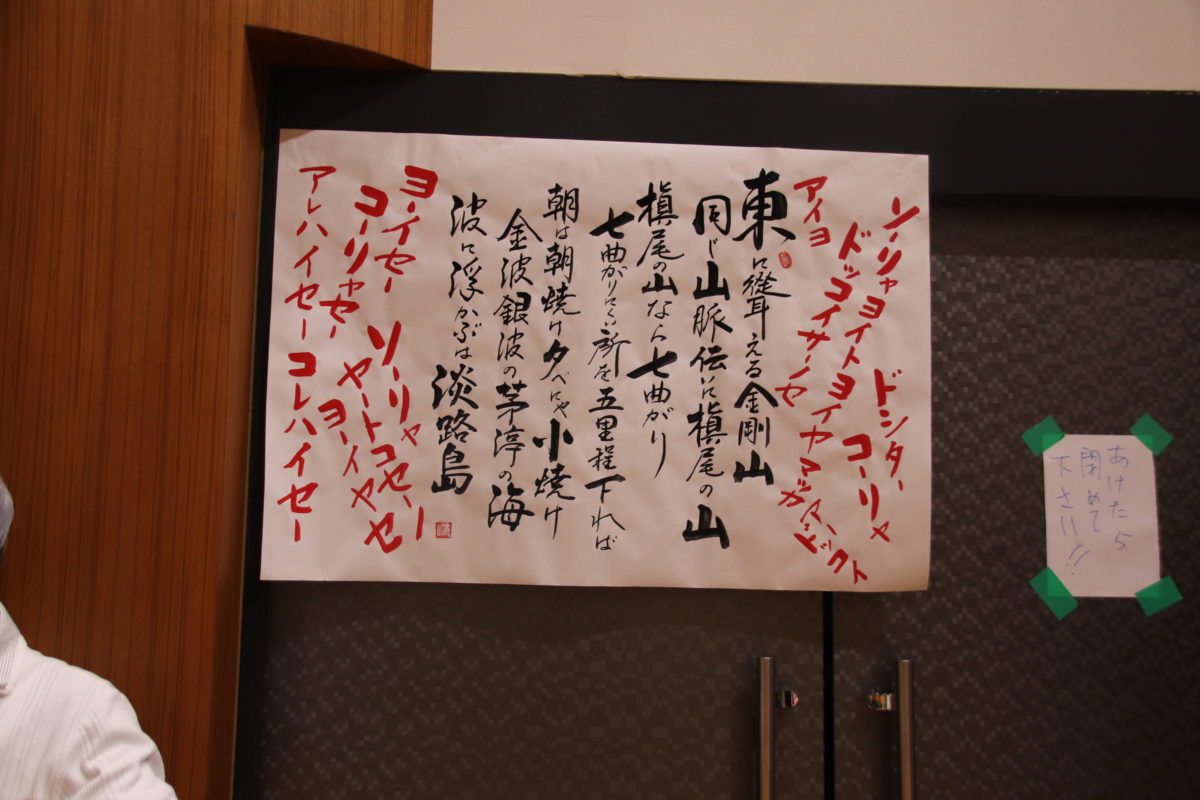 ソーリャヨイトヨイヤマッカ
ドシター コーリャ
ドッコイサーノセ
アイヨ
東に聳える金剛山
同じ山脈伝いに槇尾の山
槇尾の山なら七曲がり
七曲がりにくい所を五里程下れば
朝は朝焼け夕べにゃ小焼け
金波銀波の茅渟の海
波に浮かぶは淡路島
ヨーイセー ソーリャ
コーリャセー ヤートコセー
ヨーイヤセ
アレハイセー コレハイセー
あけたら
閉めて
下さい!!